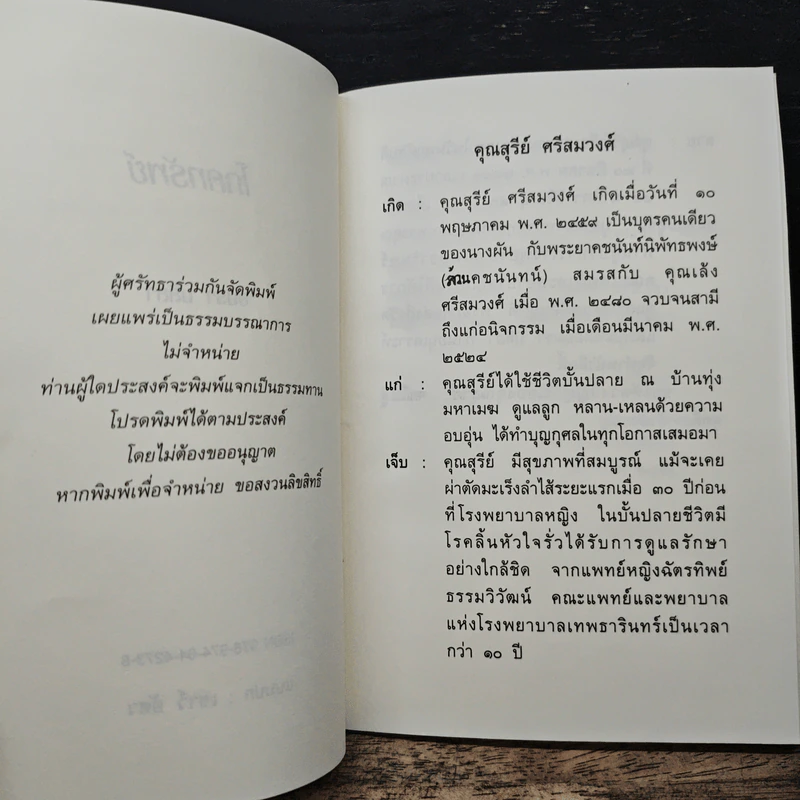 ผู้ศรัทธาร่วมกันจัดพิมพ์
เผยแพร่เป็นธรรมบรรณาการ
ไม่จำหน่าย
ท่านผู้ใดประสงค์จะพิมพ์แจกเป็นธรรมทาน
โปรดพิมพ์ได้ตามประสงค์
โดยไม่ต้องขออนุญาต
หากพิมพ์เพื่อจำหน่าย ขอสงวนลิขสิทธิ์
คุณสุรีย์ ศรีสมวงศ์
เกิด : คุณสุรีย์ ศรีสมวงศ์ เกิดเมื่อวันที่ ๑๐
พฤษภาคม พ.ศ. ๒๔๕๙ เป็นบุตรคนเดียว
ของนางผัน กับพระยาคชนันท์นิพัทธพงษ์
(ล้วนคชนันทน์) สมรสกับ คุณเล้ง
ศรีสมวงศ์ เมื่อ พ.ศ. ๒๔๘๐ จวบจนสามี
ถึงแก่อนิจกรรม เมื่อเดือนมีนาคม พ.ศ.
๒๕๒๔
แก่ : คุณสุรีย์ได้ใช้ชีวิตบั้นปลาย ณ บ้านทุ่ง
มหาเมฆ ดูแลลูก หลาน-เหลนด้วยความ
อบอุ่น ได้ทำบุญกุศลในทุกโอกาสเสมอมา
เจ็บ : คุณสุรีย์ มีสุขภาพที่สมบูรณ์ แม้จะเคย
ผ่าตัดมะเร็งลำไส้ระยะแรกเมื่อ ๓๐ ปีก่อน
ที่โรงพยาบาลหญิง ในบั้นปลายชีวิตมี
โรคลิ้นหัวใจรั่วได้รับการดูแลรักษา
อย่างใกล้ชิด จากแพทย์หญิงฉัตรทิพย์
ธรรมวิวัฒน์ คณะแพทย์และพยาบาล
แห่งโรงพยาบาลเทพธารินทร์เป็นเวลา
กว่า ๑๐ ปี